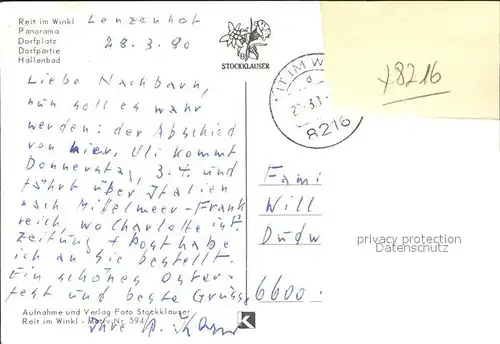 Reit im Winkl Lenzenhof
Panorama
Dorfplatz 28.3.80
Dorfpartie
Hallenbad
Liebe Nachbarn,
nun soll es wahr
werden: der Abschied
von hier. Uli kommt
Donnerstag, 3.4. und
fährt über Italien
nach Mittelmeer-Frank
reich, wo Charlotte ist.
Zeitung + Post habe
ich an Sie bestellt.
Ein schönes Oster-
fest und beste Grüsse
Ihre
Aufnahme und Verlag Foto Stockklauser
Reit im Winkl - Motiv Nr. 594
K
STOCKKLAUSER
IT IM W
8216
+8216
Fami
Will
Dudw
6600
privacy protection
Datenschutz